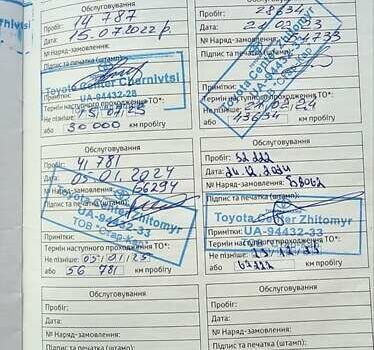 Обслуговування
Пробіг: 14 787
Дата: 15.07.2022 р.
№ Наряд-замовлення:
Підпис та печатка (штамп):
Toyota Center Chernivtsi
UA-94432-28
Примітки:
Термін наступного проходження ТО*:
Не пізніше: 15.01.23
або 30 000 км пробігу
Обслуговування
Пробіг: 28634
Дата:
№ Наряд-замовлення:
Підпис та печатка
Toyota Center Zhitomyr
UA-94432-33
ТОВ "Стар-Кар"
Примітки:
Термін наступного проходження ТО*:
Не пізніше: 21.02.24
або 43634 км пробігу
Обслуговування
Пробіг: 41 781
Дата: 05.01.2024
№ Наряд-замовлення: 66294
Підпис та печатка (штамп):
Toyota Center Zhitomyr
UA-94432-33
ТОВ "Стар-Кар"
Примітки:
Термін наступного проходження ТО*:
Не пізніше: 05.01.25
або 56 781 км пробігу
Обслуговування
Пробіг: 52 222
Дата: 24.12.2024
№ Наряд-замовлення:
Підпис та печатка (штамп):
Toyota Center Zhitomyr
UA-94432-33
Примітки:
Термін наступного проходження ТО*:
Не пізніше:
або 67222 км пробігу
Обслуговування
Пробіг:
Дата:
№ Наряд-замовлення:
Підпис та печатка (штамп):
Обслуговування
Пробіг:
Дата:
№ Наряд-замовлення:
Підпис та печатка (штамп):